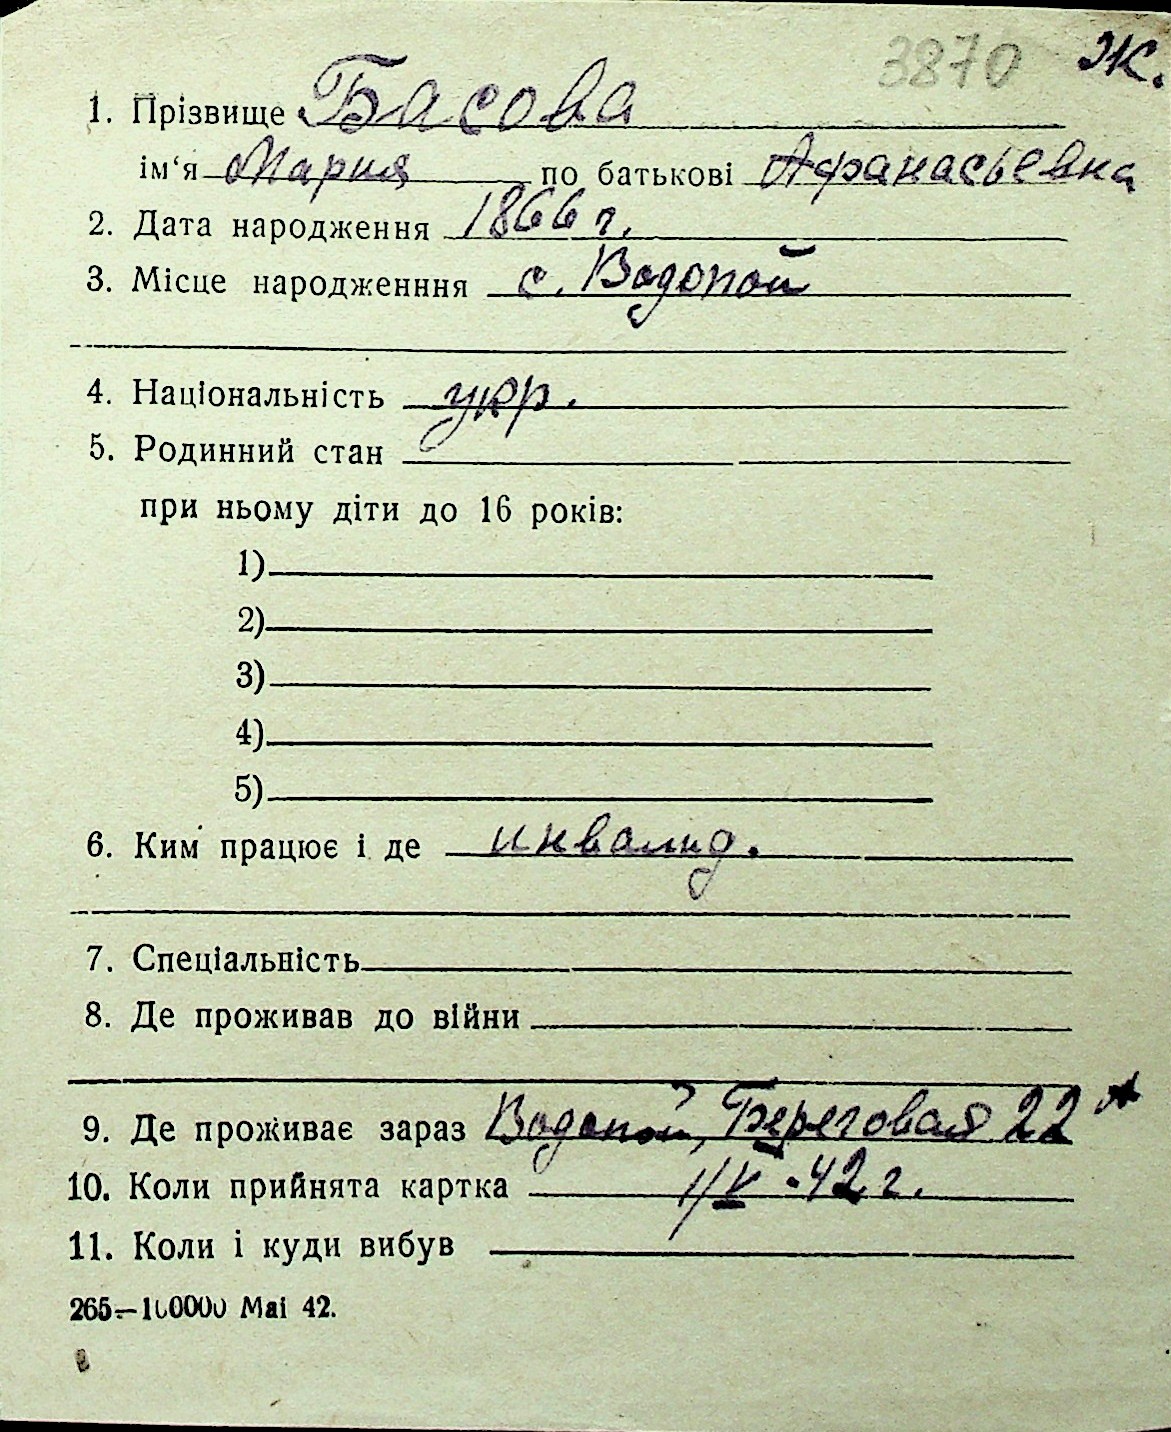 3870 Ж.
1. Прізвище Басова
ім‘я Мария по батькові Афанасьевна
2. Дата народження 1866 г.
3. Місце народженння с. Водопой
4. Національність укр.
5. Родинний стан
при ньому діти до 16 років:
1)
2)
3)
4)
5)
6. Ким працює і де инвалид.
7. Спеціальність
8. Де проживав до війни
9. Де проживає зараз Водопой, Береговая 22 А
10. Коли прийнята картка 1/V-42 г.
11. Коли і куди вибув
265—100000 Mai 42.